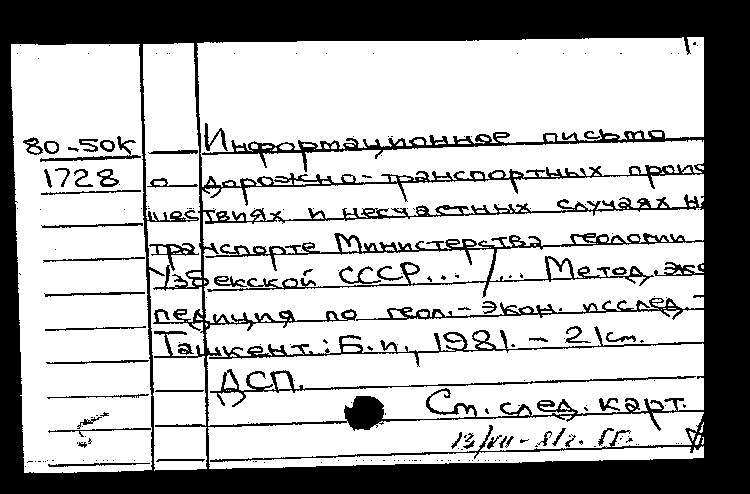 80-50к Информационное письмо
1728 о дорожно-транспортных проис
шествиях и несчастных случаях на
транспорте Министерства геологии
Узбекской СССР... /... Метод. экс
педиция по геол.-экон. исслед. -
Ташкент.: Б.и., 1981. - 21см.
ДСП.
См. след. карт.
5 13/VII-81г. ГГ.